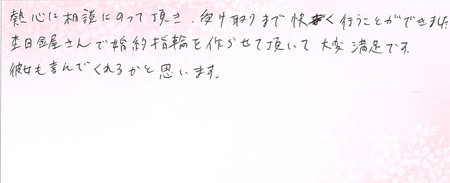 熱心に相談にのって頂き、受け取りまで快く行うことができました。
杢目金屋さんで婚約指輪を作らせて頂いて大変満足です。
彼女も喜んでくれるかと思います。